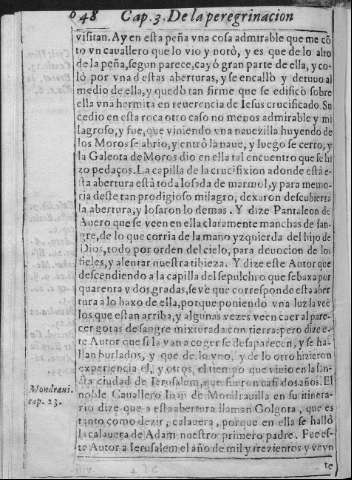 648 Cap. 3. De la peregrinacion
visitan. Ay en esta peña vna cosa admirable que me cõ
to vn cavallero que lo vio y notò, y es que de lo alto
de la peña, segun parece, cayó gran parte de ella, y co
lò por vna destas aberturas, y se encallò y detuvo al
medio de ella, y quedò tan firme que se edificò sobre
ella vna hermita en reuerencia de Iesus crucificado. Su
cedio en esta roca otro caso no menos admirable y mi
lagroso, y fue, que viniendo vna navezilla huyendo de
los Moros se abrio, y entrò la naue, y luego se cerro, y
la Galeota de Moros dio en ella tal encuentro que se hi
zo pedaços. La capilla de la crucifixion adonde està e-
sta abertura està toda losada de marmol, y para memo-
ria deste tan prodigioso milagro, dexaron descubierta
la abertura, y losaron lo demas. Y dize Pantaleon de
Auero que se veen en ella claramente manchas de san-
gre, de lo que corria de la mano yzquierda del hijo de
Dios, todo por orden del cielo, para deuocion de los
fieles, y alentar nuestra tibieza. Y dize este Autor que
descendiendo a la capilla del sepulchro que se baxa por
quarenta y dos gradas, se vè que corresponde esta aber
tura a lo baxo de ella, porque poniendo vna luz la veẽ
los que estan arriba, y algunas vezes veen caer al pare-
cer gotas de sangre mixturada con tierra: pero dize e-
te Autor que si la van a coger se desaparecen, y se ha-
llan burlados, y que de lo vno, y de lo otro hizieron
experiencia el, y otros, el tiempo que vivio en la san-
sta ciudad de Ierusalem, que fueron casi dos años. El
noble Cauallero Iuan de Mondrauilla en su itinera-
rio dize que a esta abertura llaman Golgota, que es
tanto como dezir, calauera, porque en ella se hallò
la calauera de Adam nuestro primero padre. Fue es-
te Autor a Ierusalem el año de mil y trezientos y veyn
te
Mondraui.
cap. 23.